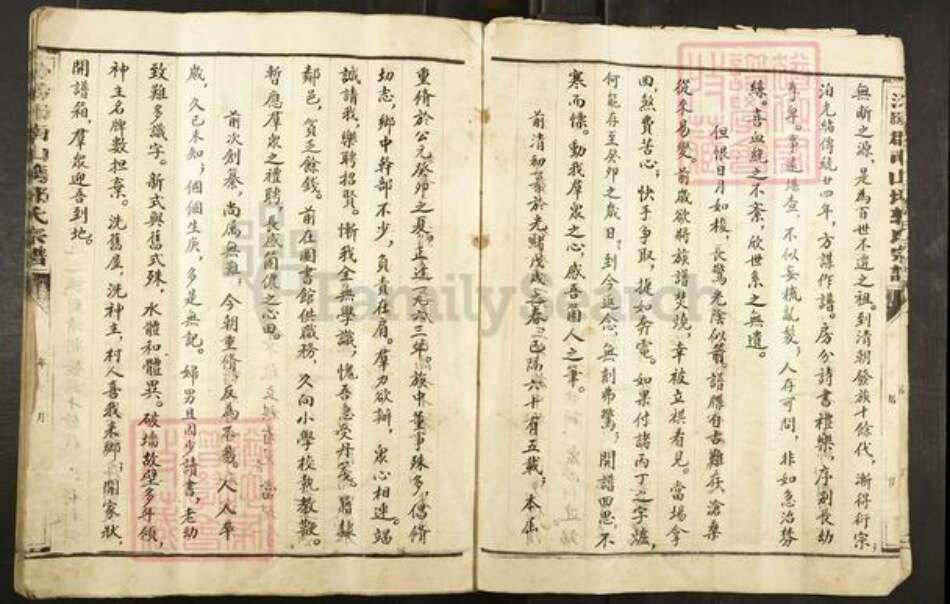 無斷之源、是為百世不遷之祖。到清朝發族十餘代，漸得衍宗；
泊光緒傳統廿四年，方謀作譜。房分詩書禮樂，序別長幼
尊卑。事遠堪查，不似妄梳亂髮；人存可問，非如急治棼
絲。喜血統之不紊，欣世系之無遺。
但恨日月如梭，長驚光陰似箭。譜牒自古難存，滄桑
從來易變。前歲欲將族譜焚燒，幸被立祺看見。當場拿
回，煞費苦心；快手爭取，捷如奔電。如果付諸丙丁之字爐，
何能存至癸卯之歲日。到今延念，無刻弗驚；開譜回思，不
寒而慄。動我羣眾之心，感吾箇人之筆。
前清初纂於光緒戊戌之春，已隔六十有五載；本届
重脩於公元癸卯之夏，正逢一九六三年。族中董事殊多，倡脩
切志，鄉中幹部不少，負責在肩。羣力欲辦，眾心相連。竭
誠請我，樂聘招賢。慚我全無學識，愧吾忝受丹箋。
鄰邑，貧乏餘錢。前在圖書館供職務，久向小學校執教鞭。
暫應羣眾之禮聘，長感箇儂之心田。
前次創纂，尚属無難，今朝重脩，反為不載。人人卒
歲，久已未知；個個生庚，多是無記。婦男且因少讀書，老幼
致難多識字。新式與舊式殊，水體和體異。破墙故壁多年領，
神主名牌數担棄。洗舊屋，洗神主，村人喜我来鄉；開家狀，
開譜箱，羣眾迎吾到地。
FamilySearch
年 月